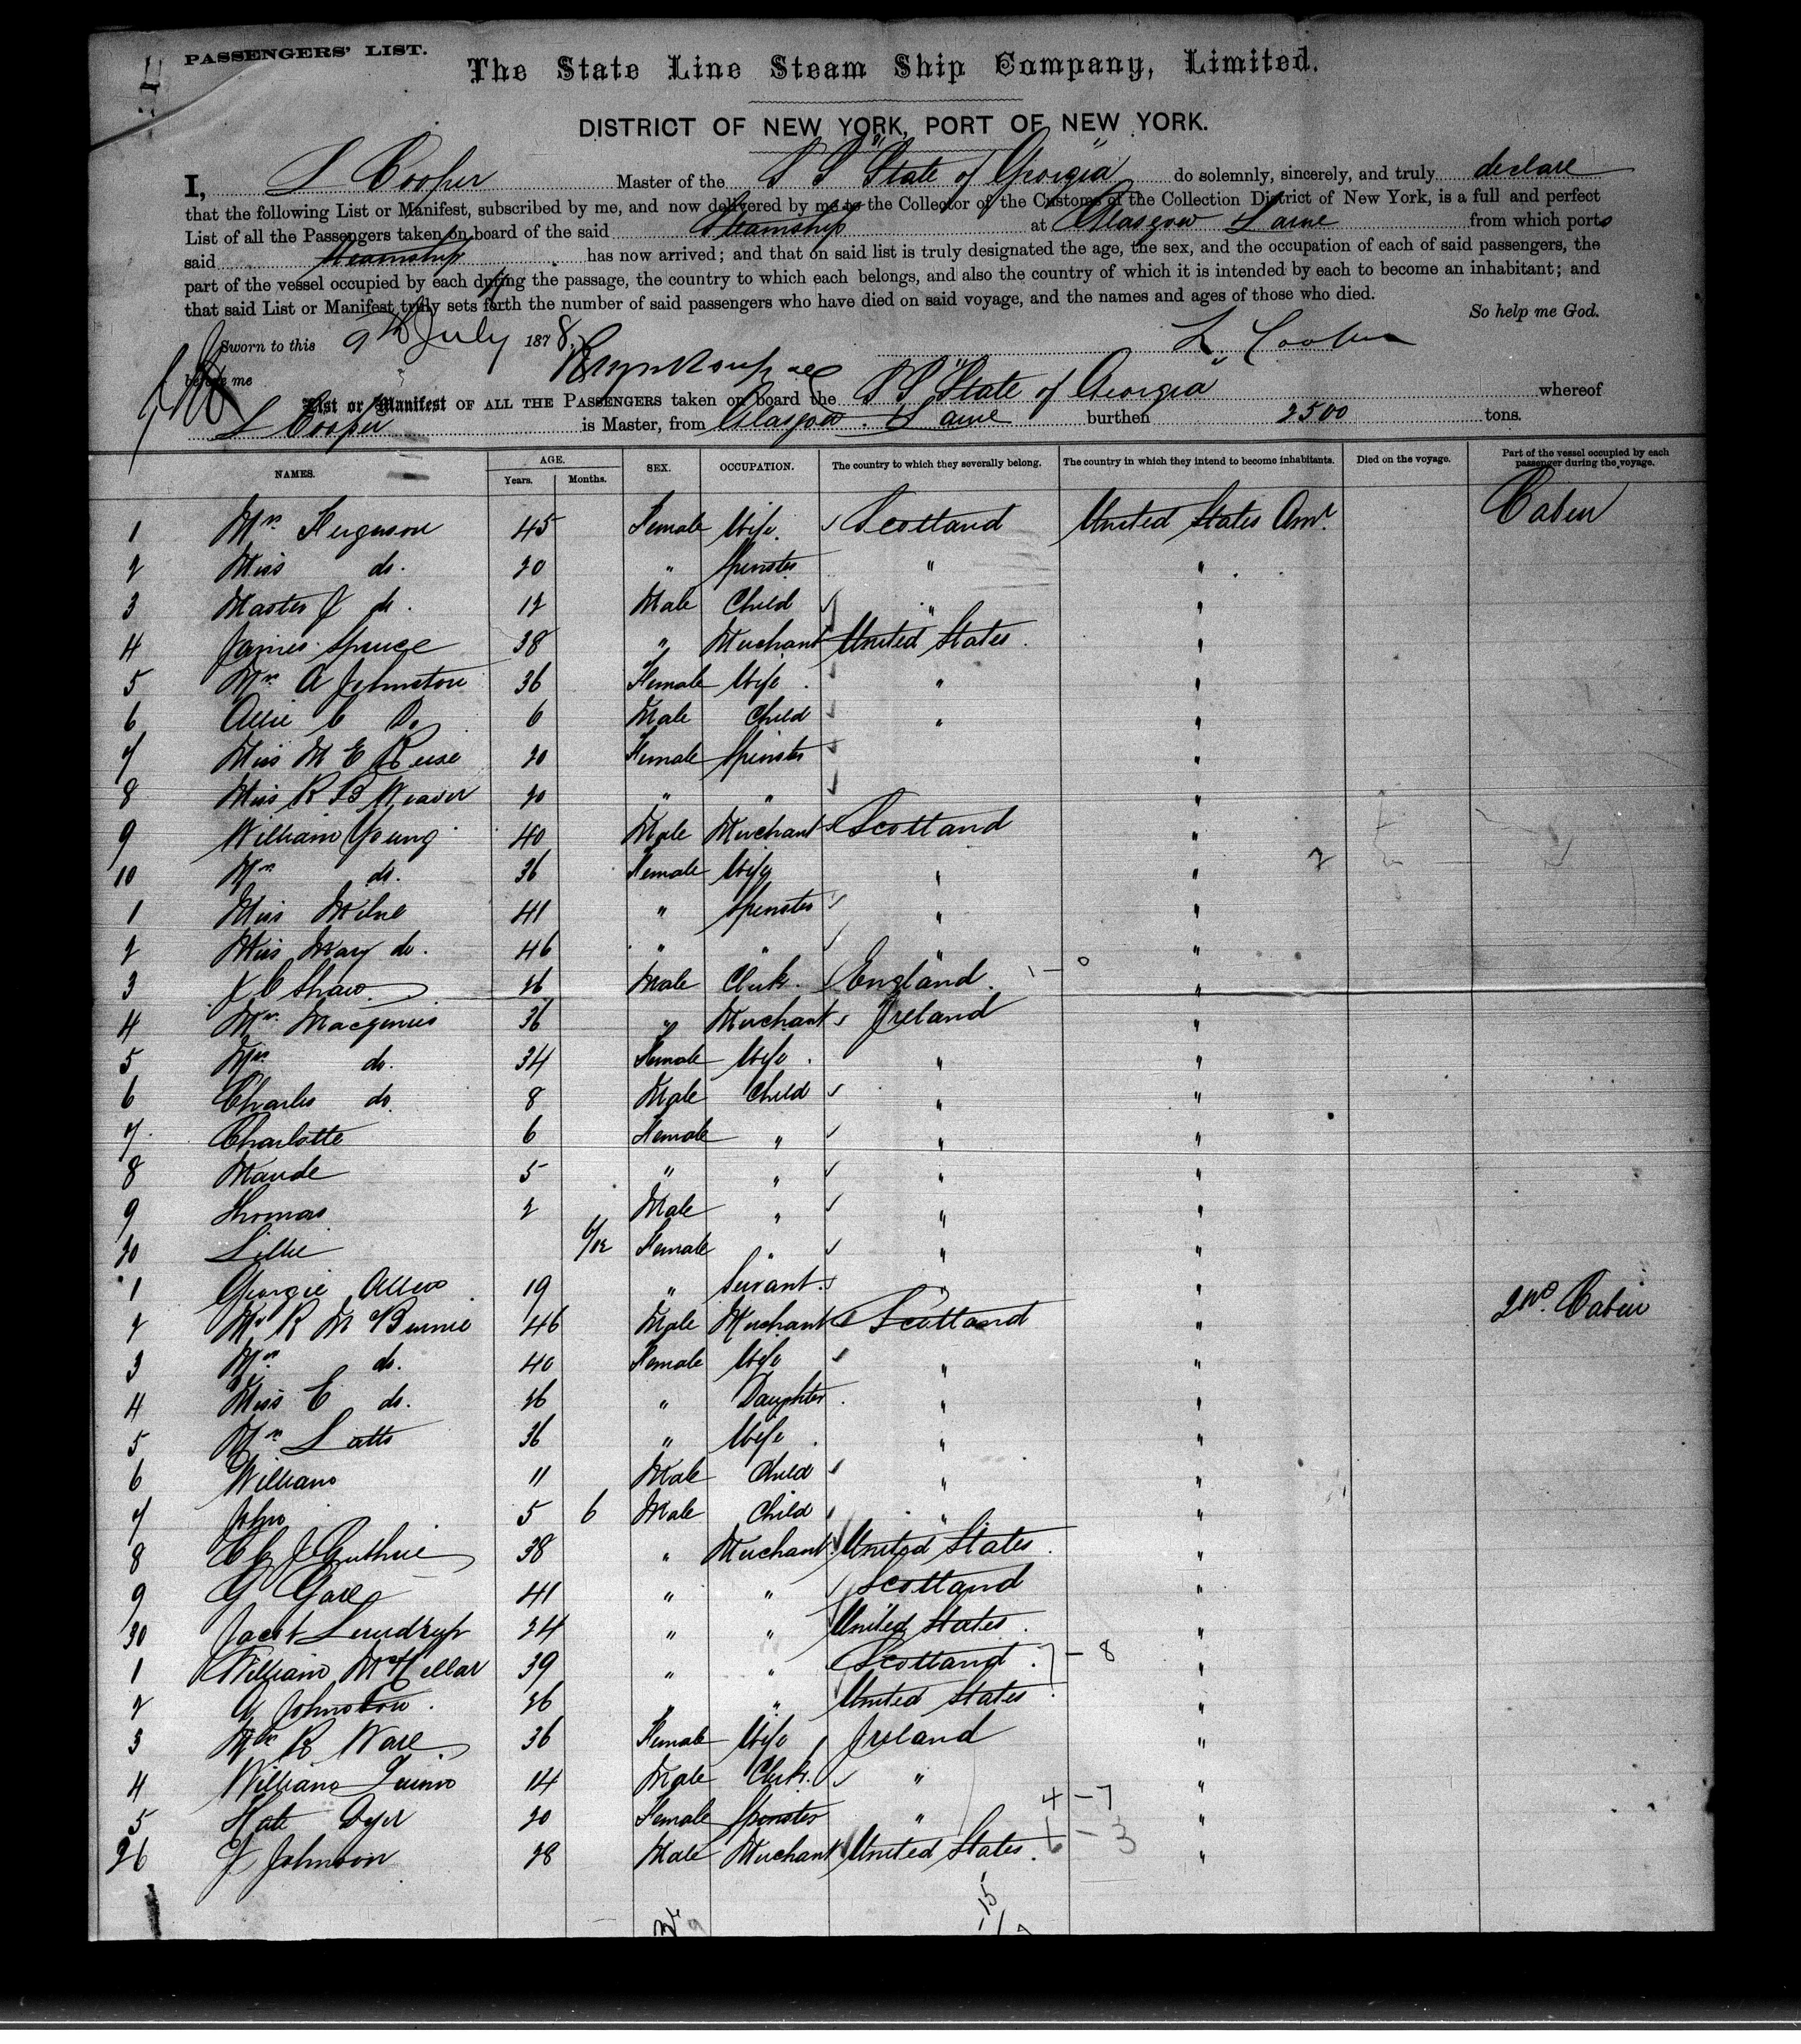 PASSENGERS' LIST.
The State Line Steam Ship Company, Limited.
DISTRICT OF NEW YORK, PORT OF NEW YORK.
I, L Cooper Master of the S S "State of Georgia" do solemnly, sincerely, and truly declare
that the following List or Manifest, subscribed by me, and now delivered by me to the Collector of the Customs of the Collection District of New York, is a full and perfect
List of all the Passengers taken on board of the said Steamship at Glasgow & Larne from which ports
said Steamship has now arrived; and that on said list is truly designated the age, the sex, and the occupation of each of said passengers, the
part of the vessel occupied by each during the passage, the country to which each belongs, and also the country of which it is intended by each to become an inhabitant; and
that said List or Manifest truly sets forth the number of said passengers who have died on said voyage, and the names and ages of those who died.
So help me God.
Sworn to this 9th July 1878, L. Cooper
before me
List or Manifest OF ALL THE PASSENGERS taken on board the S S "State of Georgia" whereof
L Cooper is Master, from Glasgow & Larne burthen 2500 tons.
NAMES. AGE. Years. Months. SEX. OCCUPATION. The country to which they severally belong. The country in which they intend to become inhabitants. Died on the voyage. Part of the vessel occupied by each passenger during the voyage.
1 Mrs Ferguson 45 Female Wife Scotland United States Amr. Cabin
2 Miss do. 20 " Spinster " "
3 Master J do. 12 Male Child " "
4 James Spruce 38 " Merchant United States "
5 Mrs A Johnstone 36 Female Wife " "
6 Allie C Do 6 Male Child " "
7 Miss M E Reese 20 Female Spinster "
8 Miss R B Weaver 20 " " "
9 William Young 40 Male Merchant Scotland "
10 Mrs do. 36 Female Wife " "
1 Miss Milne 41 " Spinster " "
2 Miss Mary do. 46 " " " "
3 J C Shaw 26 Male Clerk England "
4 Mr. Macginnis 36 " Merchant Ireland "
5 Mrs do. 34 Female Wife " "
6 Charles do. 8 Male Child " "
7 Charlotte 6 Female " " "
8 Maude 5 " " " "
9 Thomas 2 Male " " "
20 Lillie 6/12 Female " " "
1 Georgie Allen 19 " Servant " "
2 Mr R M Birnie 46 Male Merchant Scotland " 2nd. Cabin
3 Mrs do. 40 Female Wife " "
4 Miss E do. 26 " Daughter " "
5 Mrs Latts 36 " Wife " "
6 William 11 Male Child " "
7 John 5 6 Male Child " "
8 J Guthrie 38 " Merchant United States "
9 G Gare 41 " " Scotland "
30 Jacob 24 " " United States "
1 William McKellar 39 " " Scotland "
2 Johnston 26 " " United States "
3 Mrs R Ware 36 Female Wife Ireland "
4 William Quinn 14 Male Clerk " "
5 Kate Dyer 20 Female Spinster " "
36 J Johnson 28 Male Merchant United States "